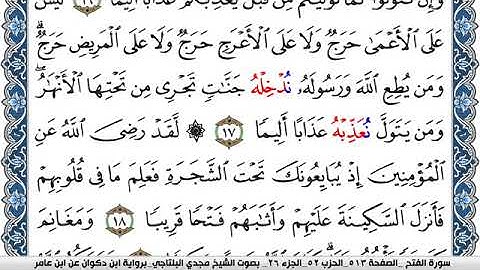 وَإِن تَتَوَلَّوْا۟ كَمَا تَوَلَّيْتُم مِّن قَبْلُ يُعَذِّبْكُمْ عَذَابًا أَلِيمًا ١٦ لَّيْسَ
عَلَى ٱلْأَعْمَىٰ حَرَجٌ وَلَا عَلَى ٱلْأَعْرَجِ حَرَجٌ وَلَا عَلَى ٱلْمَرِيضِ حَرَجٌ ۗ
وَمَن يُطِعِ ٱللَّهَ وَرَسُولَهُۥ نُدْخِلْهُ جَنَّٰتٍ تَجْرِى مِن تَحْتِهَا ٱلْأَنْهَٰرُ ۖ
وَمَن يَتَوَلَّ نُعَذِّبْهُ عَذَابًا أَلِيمًا ١٧ ۞ لَّقَدْ رَضِىَ ٱللَّهُ عَنِ
ٱلْمُؤْمِنِينَ إِذْ يُبَايِعُونَكَ تَحْتَ ٱلشَّجَرَةِ فَعَلِمَ مَا فِى قُلُوبِهِمْ
فَأَنزَلَ ٱلسَّكِينَةَ عَلَيْهِمْ وَأَثَٰبَهُمْ فَتْحًا قَرِيبًا ١٨ وَمَغَانِمَ
سورة الفتح _ الصفحة ٥١٣_الحزب ٥٢_الجزء ٢٦_ بصوت الشيخ مجدي البلتاجي_برواية ابن ذكوان عن ابن عامر